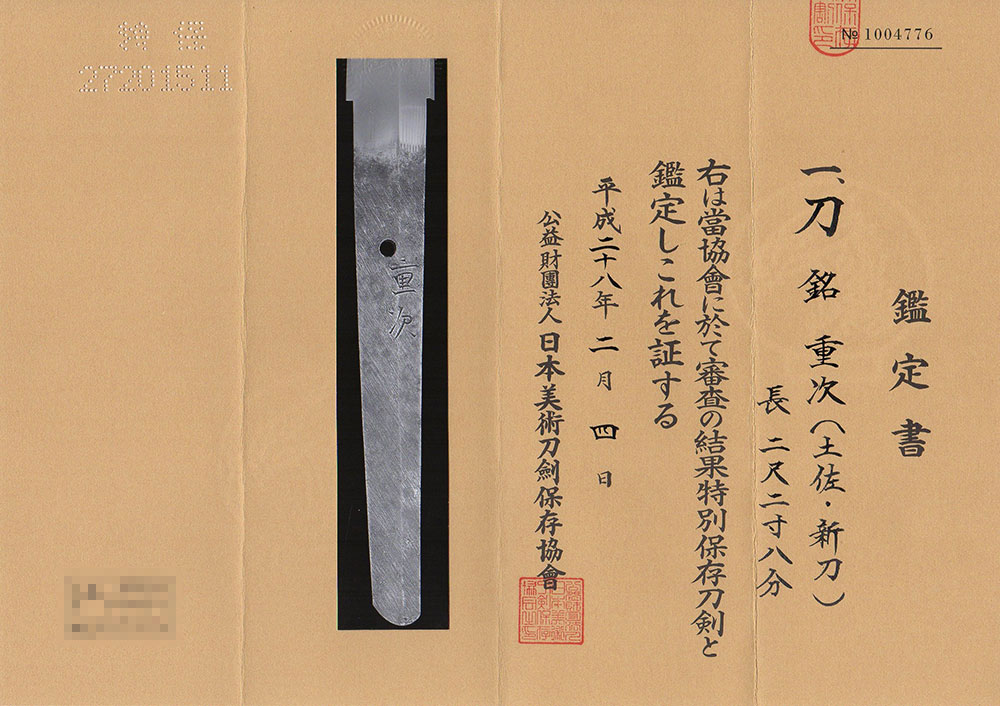 № 1004776
鑑定書
一、刀 銘 重次(土佐・新刀)
長 二尺二寸八分
右は當協會に於て審査の結果特別保存刀剣と
鑑定しこれを証する
平成二十八年 二月 四日
公益財團法人 日本美術刀劍保存協會
重次
27201511